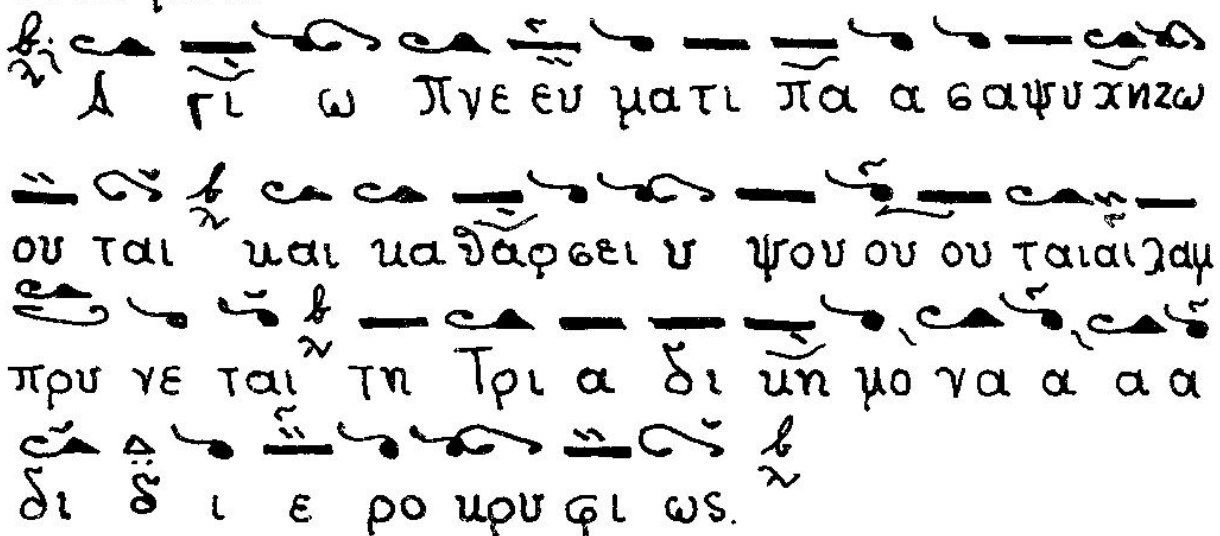 Α γι ω Πνε ευ μα τι πα α σα ψυ χη ζω
ου ται και κα θαρ σει υ ψου ου ου ται αι λαμ
πρυ νε ται τη Τρι α δι κη μο να α α α
δι δ ι ε ρο κρυ φι ως.